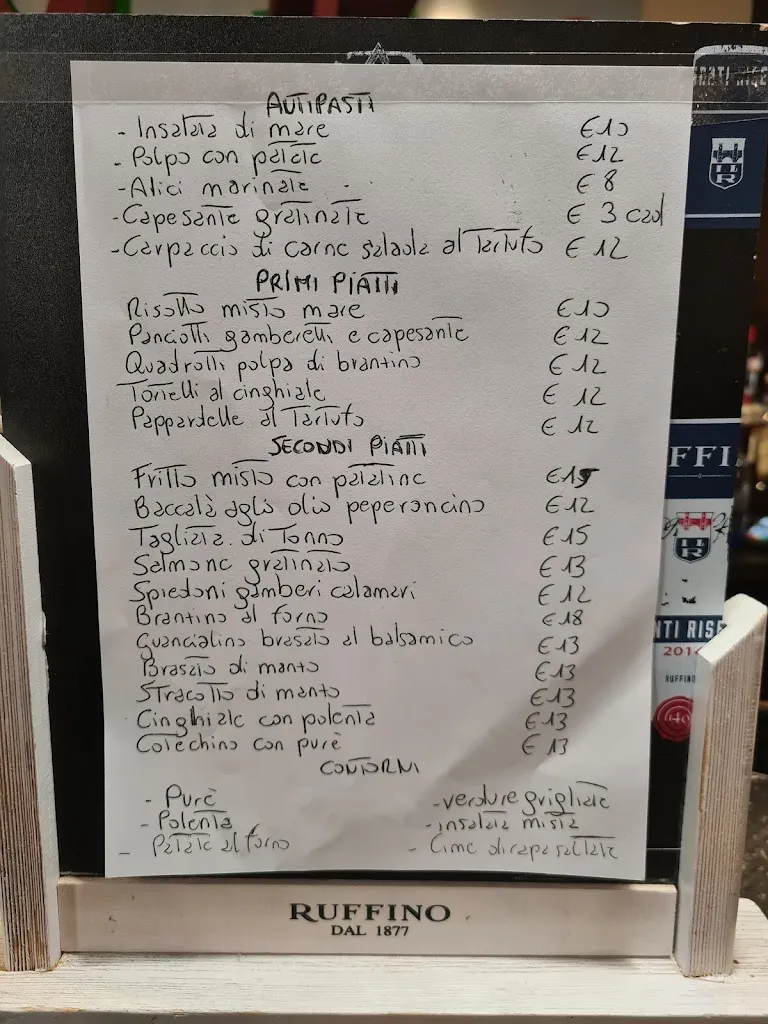 ANTIPASTI
- Insalata di mare €10
- Polpo con patate €12
- Alici marinate €8
- Capesante gratinate € 3 cad
- Carpaccio di carne salada al Tartufo € 12
PRIMI PIATTI
Risotto misto mare €10
Panciotti gamberetti e capesante €12
Quadrotti polpa di brantino €12
Tortelli al cinghiale € 12
Pappardelle al Tartufo € 12
SECONDI PIATTI
Fritto misto con patatine €15
Baccalà aglio olio peperoncino €12
Tagliata di Tonno €15
Salmone gratinato €13
Spiedoni gamberi calamari €12
Brantino al forno €18
Guancialino brasato al balsamico €13
Brasato di manzo €13
Stracotto di manzo €13
Cinghiale con polenta €13
Cotechino con purè €13
CONTORNI
- Purè - verdure grigliate
- Polenta - insalata mista
- Patate al forno - Cime di rapa saltate
RUFFINO
DAL 1877
FFI
NTI RISE
2014
RUFFINO